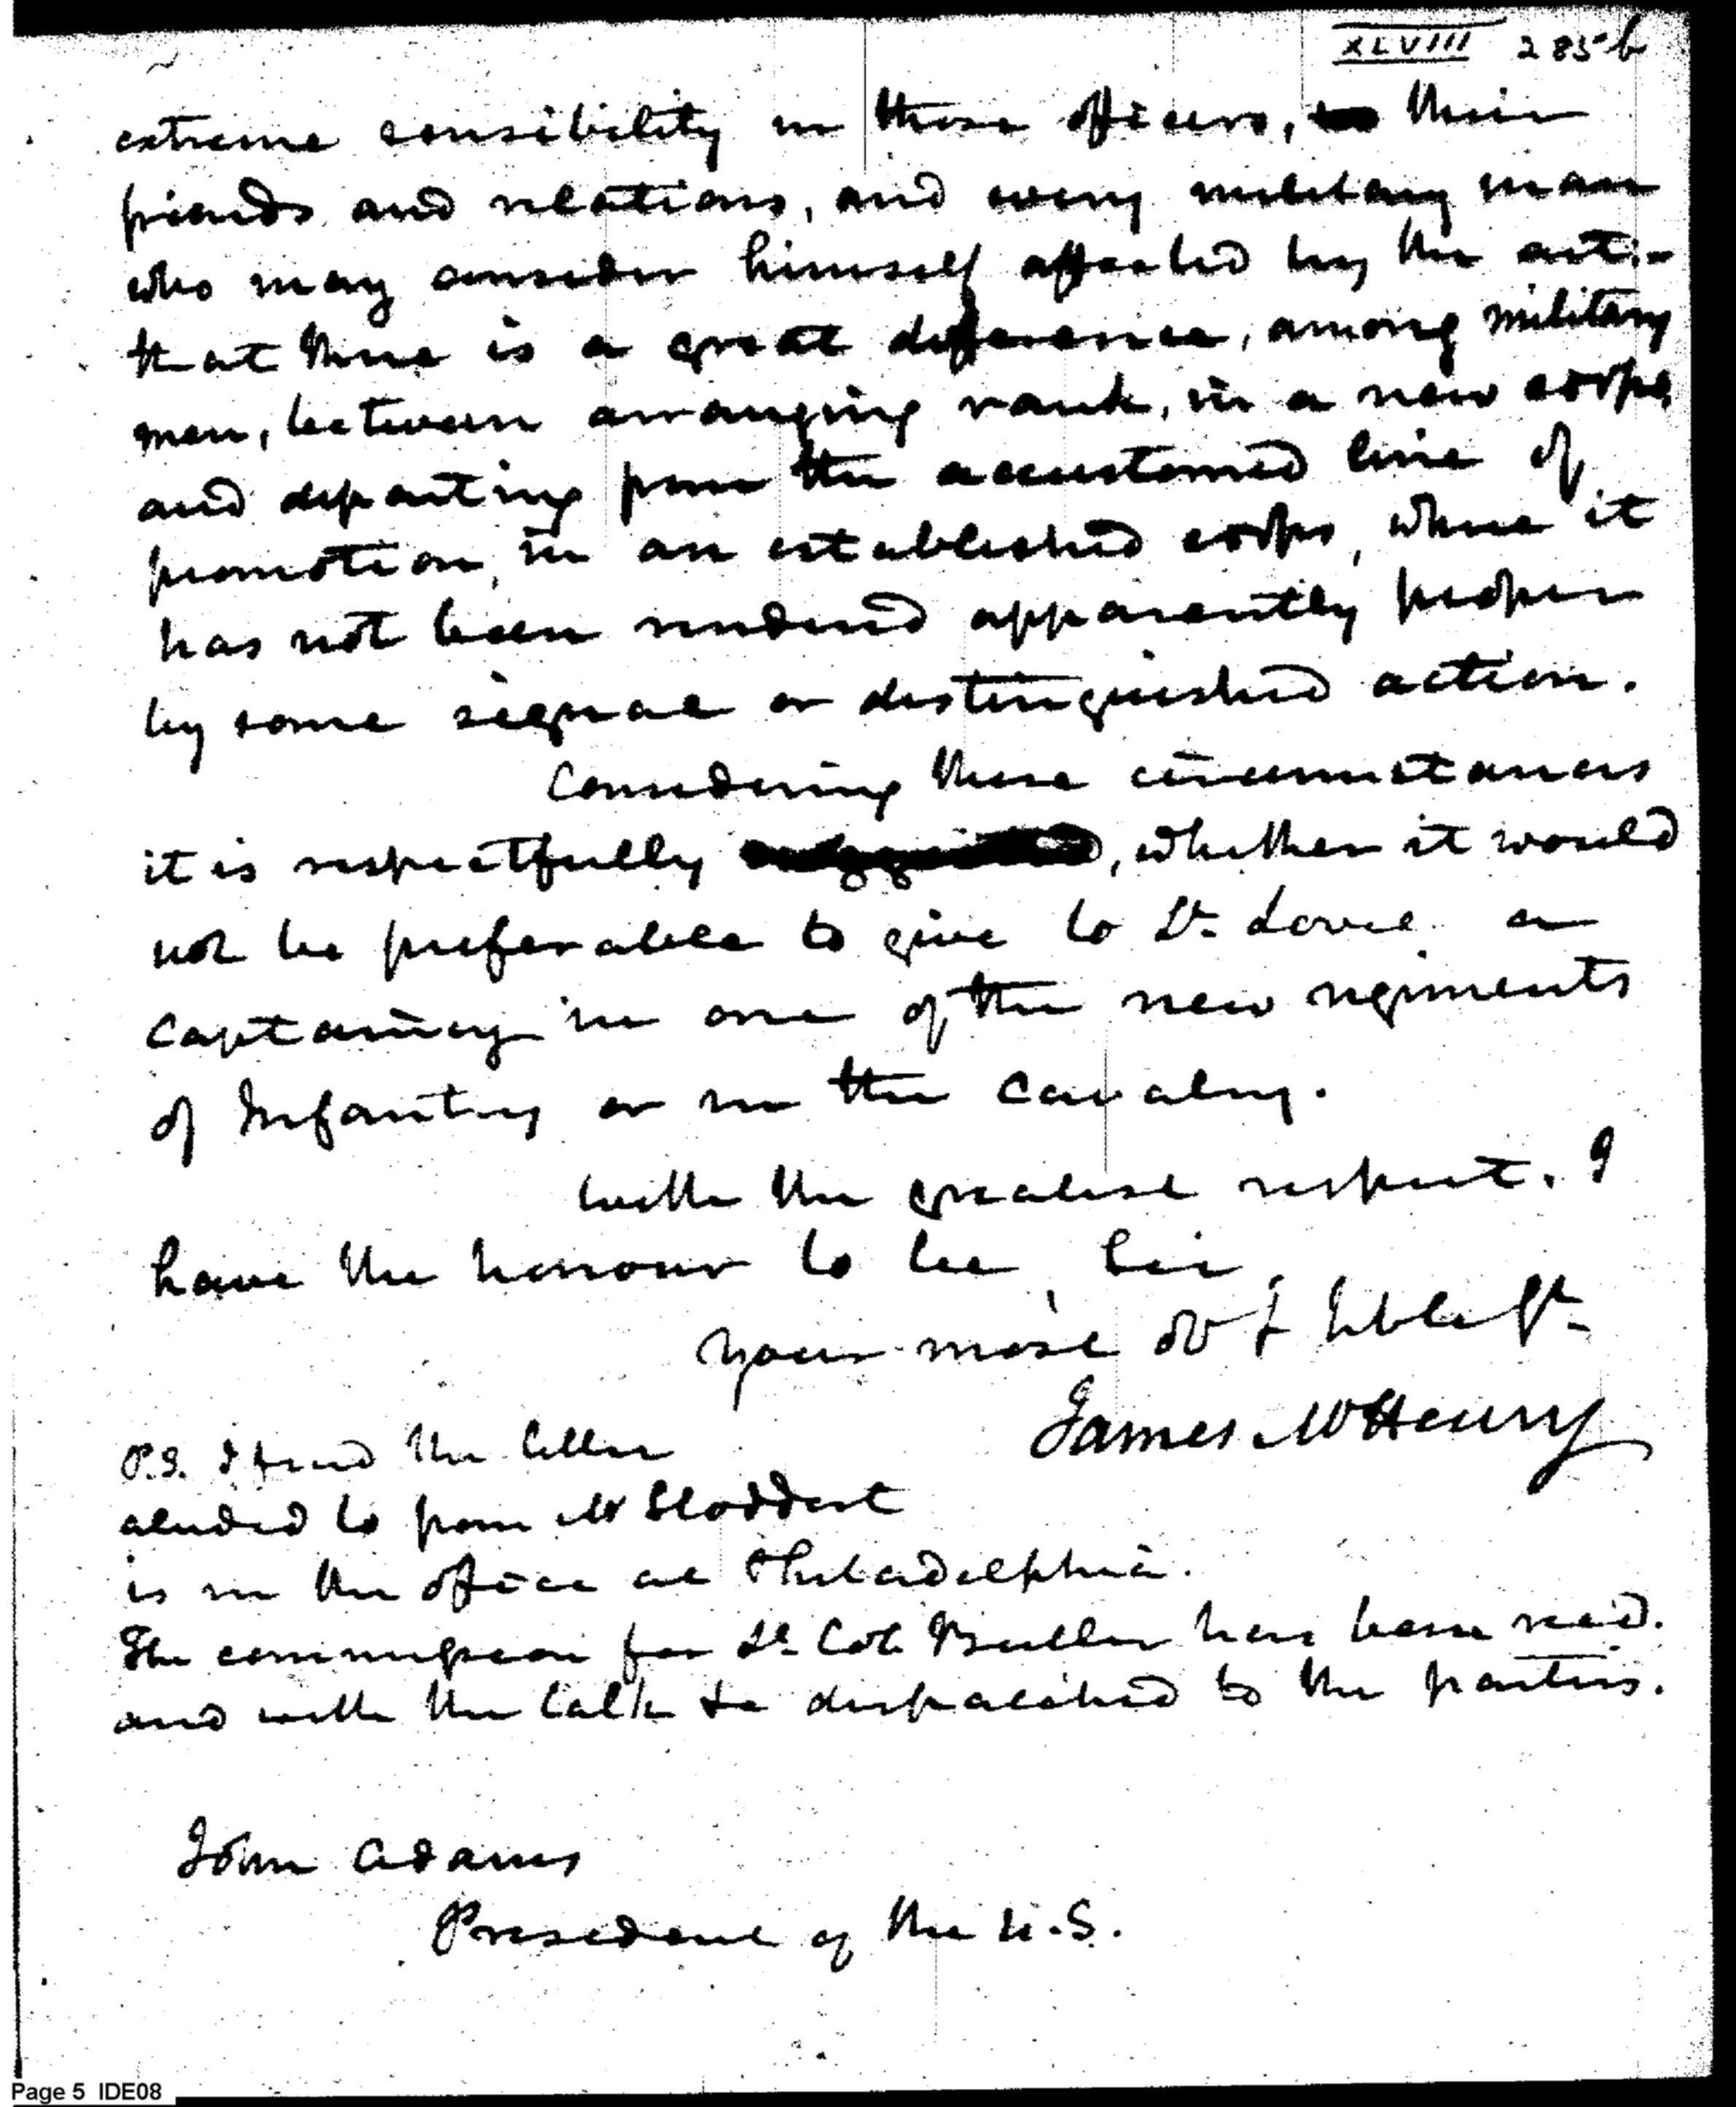 XLVIII 285 b
extreme sensibility in those officers, their
friends and relations, and every military man
who may consider himself affected by the act:-
that there is a great difference, among military
men, between arranging rank, in a new corps,
and departing from the accustomed line of
promotion, in an established corps, where it
has not been rendered apparently proper
by some signal or distinguished action.
Considering these circumstances
it is respectfully suggested, whether it would
not be preferable to give to Lt. Lovel a
Captaincy in one of the new regiments
of Infantry or in the Cavalry.
with the greatest respect. I
have the honour to be, Sir,
your most ob & hble St.
James McHenry
P.S. I find the letter
aluded to from Mr Stoddert
is in the office at Philadelphia.
The commission for Lt. Col. Butler has been recd.
and with the talk be dispatched to the parties.
John Adams
President of the U.S.
Page 5 IDE08